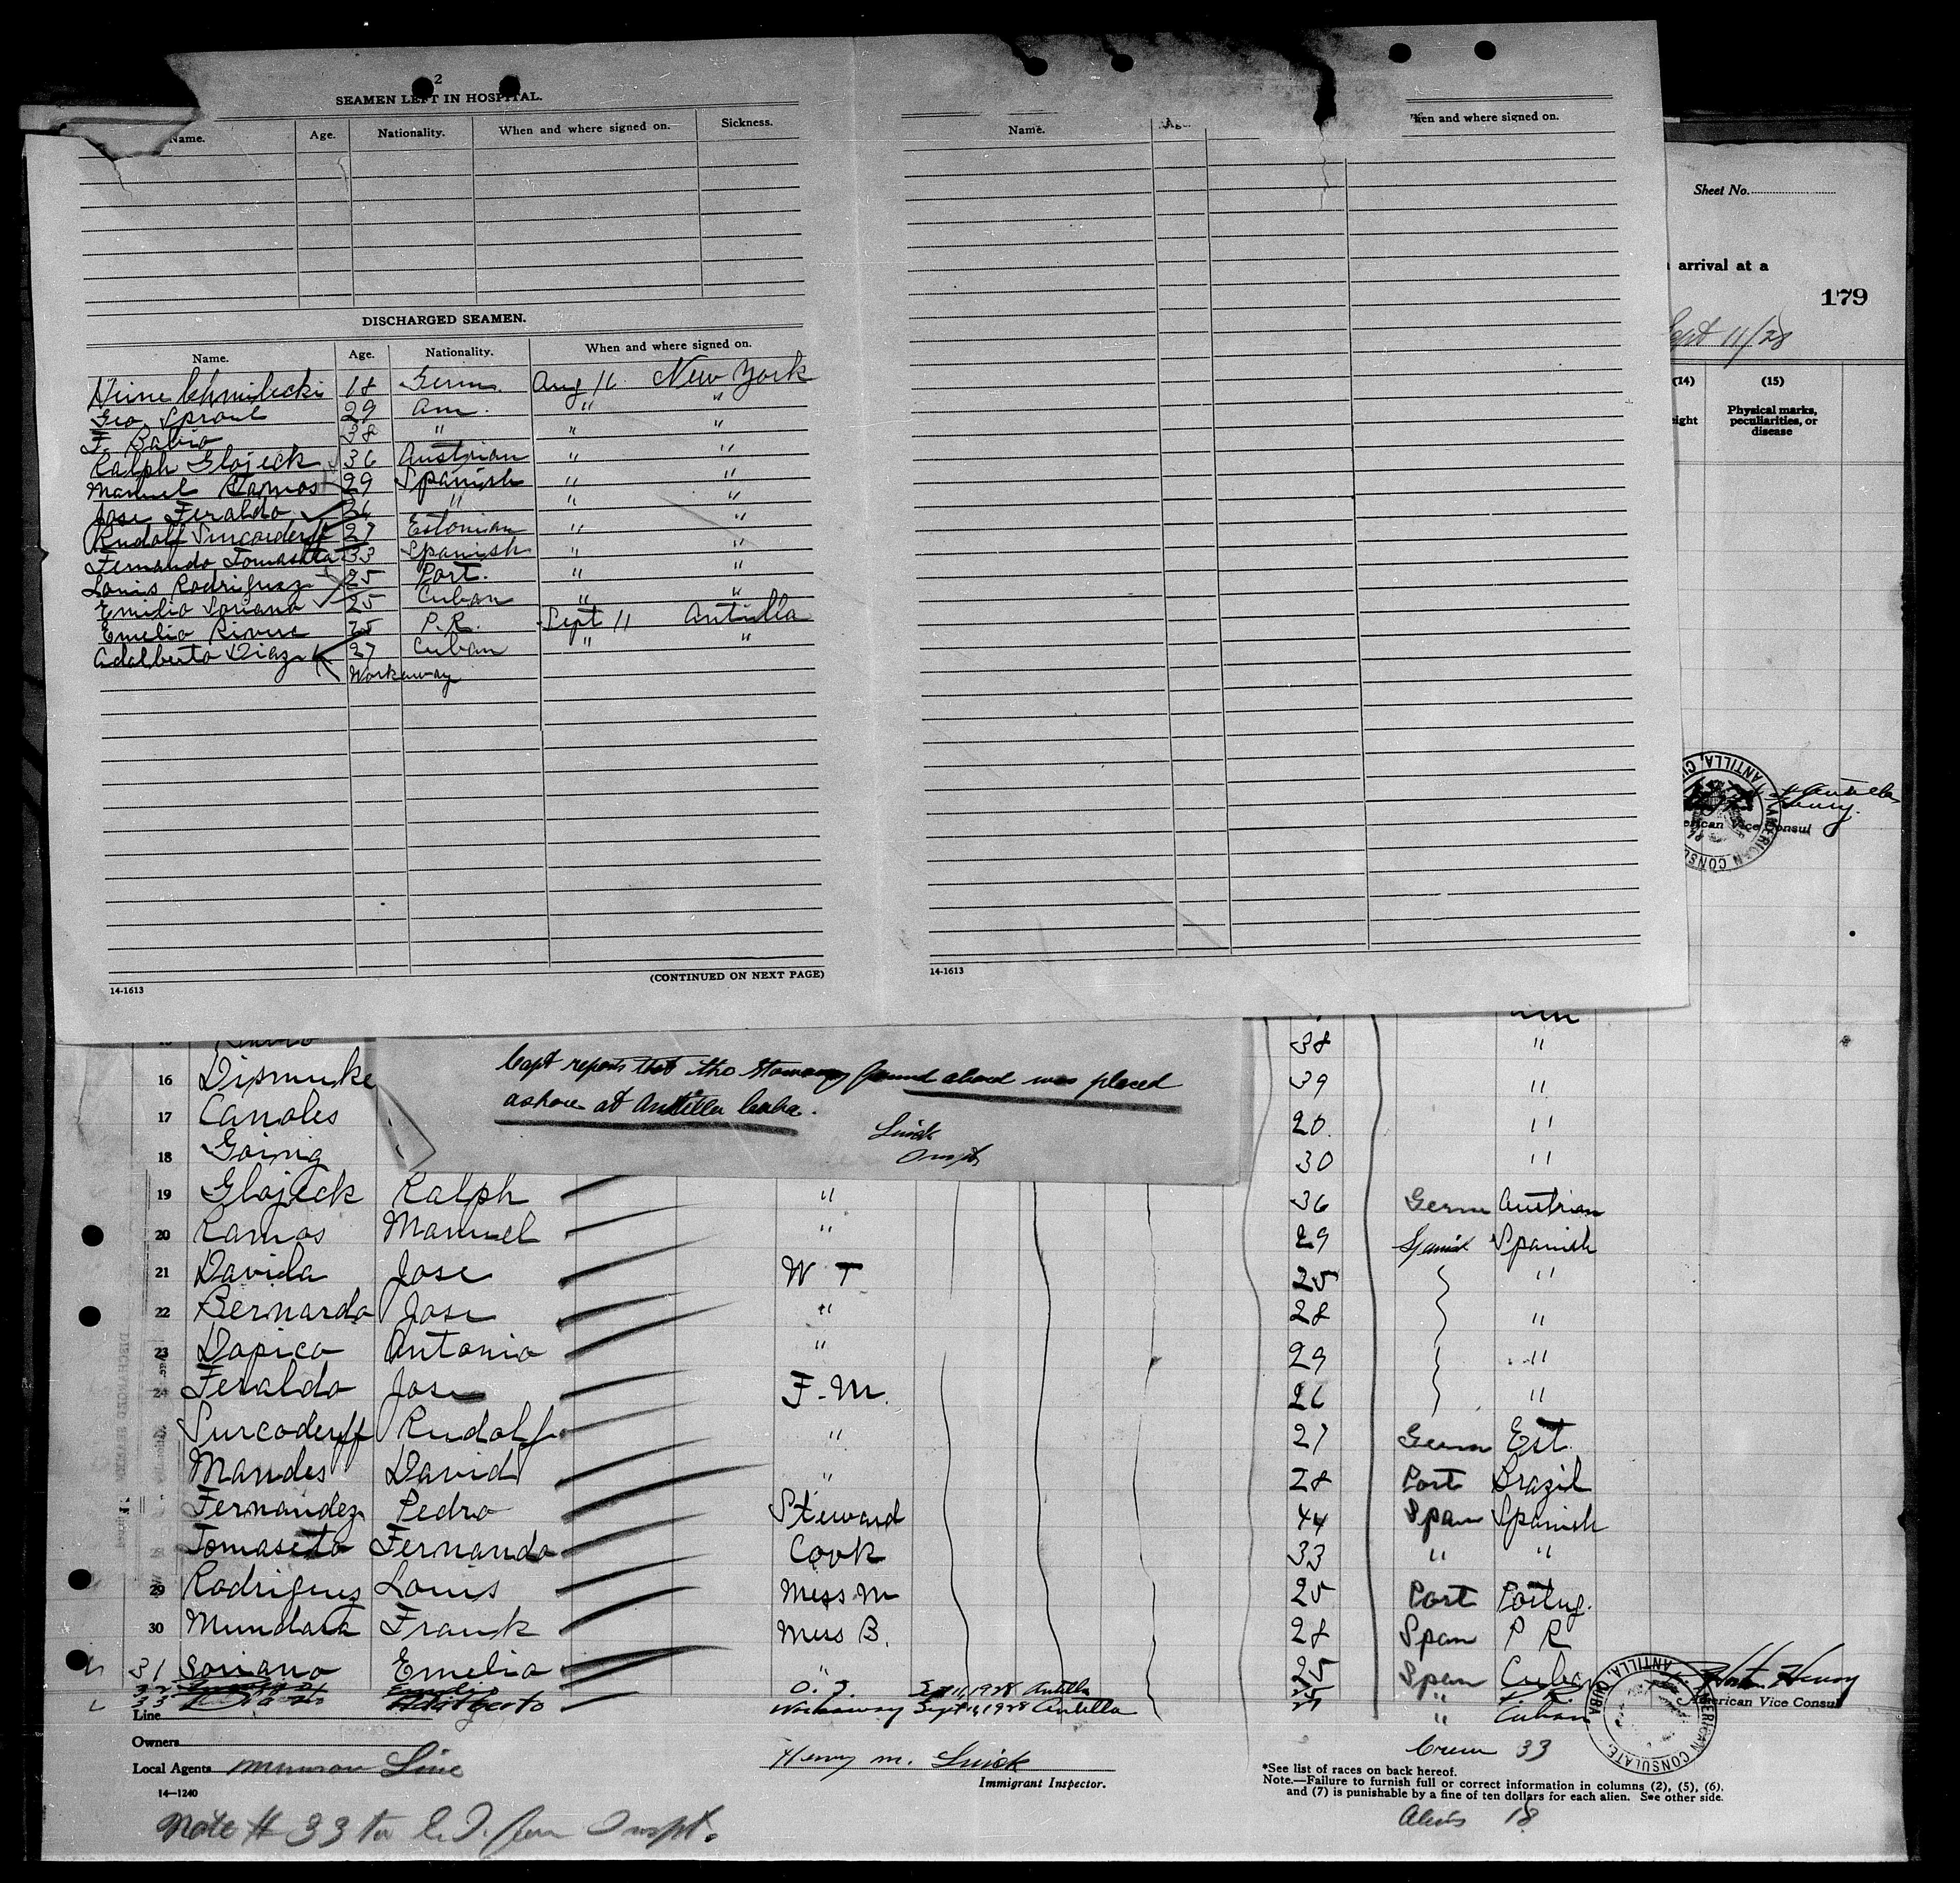 2
SEAMEN LEFT IN HOSPITAL.
Name. Age. Nationality. When and where signed on. Sickness.
DISCHARGED SEAMEN.
Name. Age. Nationality. When and where signed on.
18 Germ. Aug 11 New York
Geo. Sproul 29 Am. " "
F. Babio 38 " " "
Ralph Glojeck 36 Austrian " "
Manuel Ramos 29 Spanish " "
Jose Feraldo 26 " " "
Rudolf Surcoderff 27 Estonian " "
Fernando Tomaseta 33 Spanish " "
Louis Rodriguez 25 Port. " "
Emilio Soriano 25 Cuban " "
Emelio Rivere 25 P.R. Sept 11 Antilla
Adalberto Diaz 27 Cuban " "
Workaway
(CONTINUED ON NEXT PAGE)
14-1613
Name. Age. When and where signed on.
14-1613
Sheet No.
arrival at a
179
Sept 11/28
(14) (15)
Physical marks, peculiarities, or disease
ANTILLA, AMERICAN CONSUL
American Vice Consul
38 "
16 Dismuke 39 "
17 Canoles 20 "
18 Going 30 "
Capt reports that the stowaway found aboard was placed
ashore at Antilla Cuba.
Luick
Insptr
19 Glojeck Ralph " 36 Germ Austrian
20 Ramos Manuel " 29 Spanish Spanish
21 Davila Jose W T 25 "
22 Bernardo Jose " 28 "
23 Dopico Antonio " 29 "
24 Feraldo Jose F-M. 26 "
Surcoderff Rudolf " 27 Germ Est.
Mandes David " 28 Port Brazil
Fernandez Pedro Steward 44 Span Spanish
Tomaseto Fernando Cook 33 " "
29 Rodriguez Louis Mess m 25 Port Portug.
30 Mundata Frank Mess B. 28 Span P R
31 Soriano Emelio " 25 Span Cuban
32 Sept 11, 1928 Antilla
33 Diaz Adalberto Workaway Sept 11, 1928 Antilla 27 " Cuban
Line
Henry
American Vice Consul
AMERICAN CONSULATE, ANTILLA, CUBA
Owners
Local Agents Munson Line
14—1240
Henry M. Luick
Immigrant Inspector.
Crew 33
*See list of races on back hereof.
Note.—Failure to furnish full or correct information in columns (2), (5), (6), and (7) is punishable by a fine of ten dollars for each alien. See other side.
Aliens 18
Note # 33